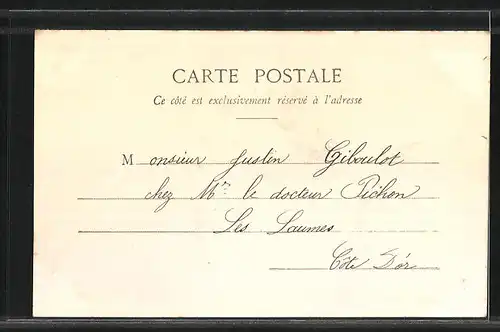 CARTE POSTALE
Ce côté est exclusivement réservé à l'adresse
Monsieur Justin Giboulot
chez Mr le docteur Pichon
Les Laumes
Côte d'Or